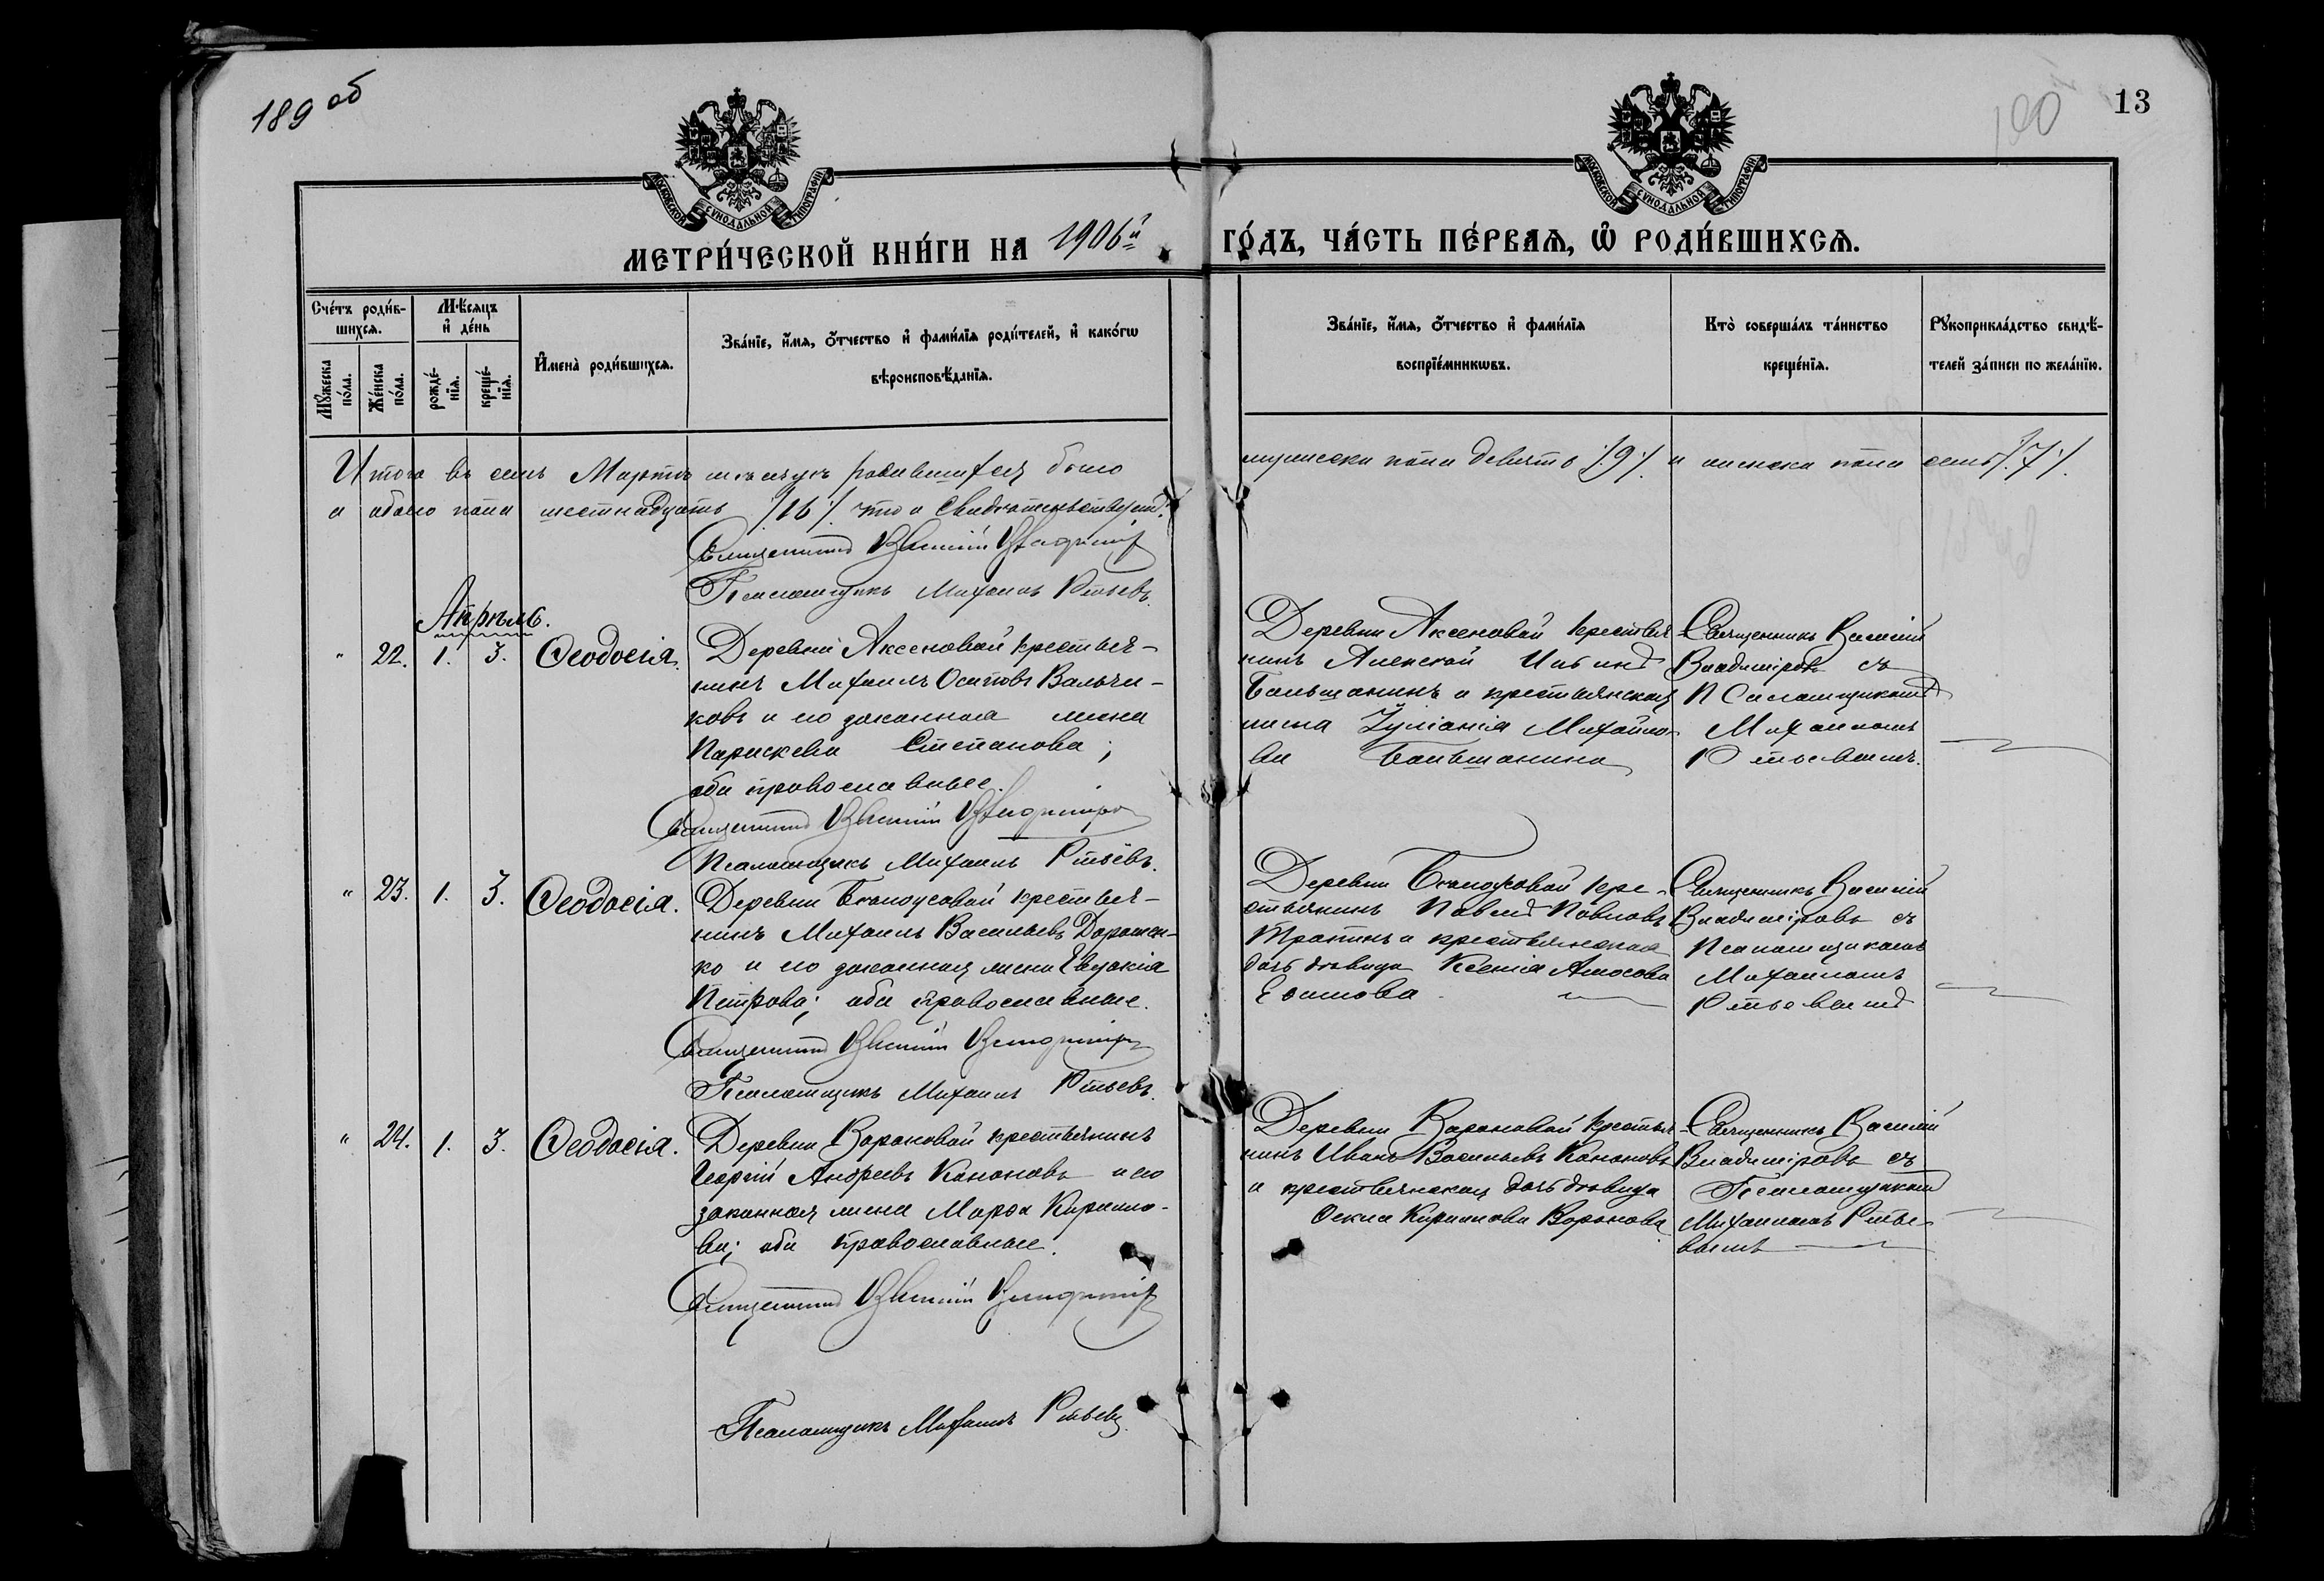 189 об
13
МОСКОВСКОЙ СѴНОДАЛЬНОЙ ТИПОГРАФІИ
МОСКОВСКОЙ СѴНОДАЛЬНОЙ ТИПОГРАФІИ
МЕТРИ́ЧЕСКОЙ КНИ́ГИ НА 1906й ГО́ДЪ, ЧА́СТЬ ПЕ́РВАѦ, Ѿ РОДИ́ВШИХСѦ.
Сче́тъ роди́в-
шихсѧ.
Мѣ́сѧцъ
и҆ де́нь
Мꙋ́жеска
по́ла.
Же́нска
по́ла.
рожде́-
нїѧ.
креще́-
нїѧ.
И҆мена̀ роди́вшихсѧ.
Зва́нїе, и҆́мѧ, ѻ҆́тчество и҆ фами́лїѧ роди́телей, и҆ како́гѡ
вѣроисповѣ́данїѧ.
Зва́нїе, и҆́мѧ, ѻ҆́тчество и҆ фами́лїѧ
воспрїе́мникѡвъ.
Кто̀ соверша́лъ та́инство
креще́нїѧ.
Рꙋкоприкла́дство свидѣ́-
телей за́писи по жела́нїю.
Итого въ семъ Мартѣ мѣсяцѣ родившихся было мужеска пола девять /.9./. и женска пола семь /.7./.
а обоего пола шестнадцать /.16./. что и свидѣтельствуемъ.
Священникъ Василій Владиміровъ
Псаломщикъ Михаилъ Ртьевъ.
Апрѣль.
" 22. 1. 3. Ѳеодосія.
Деревни Аксеновой крестья-
нинъ Михаилъ Осиповъ Вальчи-
ковъ и его законная жена
Параскева Степанова;
оба православные.
Священникъ Василій Владиміровъ
Псаломщикъ Михаилъ Ртьевъ.
Деревни Аксеновой крестья-
нинъ Алексѣй
Большанинъ и крестьянская
жена Іуліанія Михайло-
ва Большанина
Священникъ Василій
Владиміровъ съ
Псаломщикомъ
Михаиломъ
Ртьевымъ.
" 23. 1. 3. Ѳеодосія.
Деревни Бѣлоусовой крестья-
нинъ Михаилъ Васильевъ Дорошен-
ко и его законная жена Евдокія
Петрова; оба православные.
Священникъ Василій Владиміровъ
Псаломщикъ Михаилъ Ртьевъ.
Деревни Бѣлоусовой кре-
стьянинъ Павелъ Павловъ
и крестьянская
дочь дѣвица Ксенія Амосова
Священникъ Василій
Владиміровъ съ
Псаломщикомъ
Михаиломъ
Ртьевымъ
" 24. 1. 3. Ѳеодосія.
Деревни Вороновой крестьянинъ
Георгій Андреевъ Кононовъ и его
законная жена Марѳа Кирилло-
ва; оба православные.
Священникъ Василій Владиміровъ
Псаломщикъ Михаилъ Ртьевъ.
Деревни Вороновой крестья-
нинъ Иванъ Васильевъ Кононовъ
и крестьянская дочь дѣвица
Ѳекла Кириллова Воронова
Священникъ Василій
Владиміровъ съ
Псаломщикомъ
Михаиломъ Ртье-
вымъ